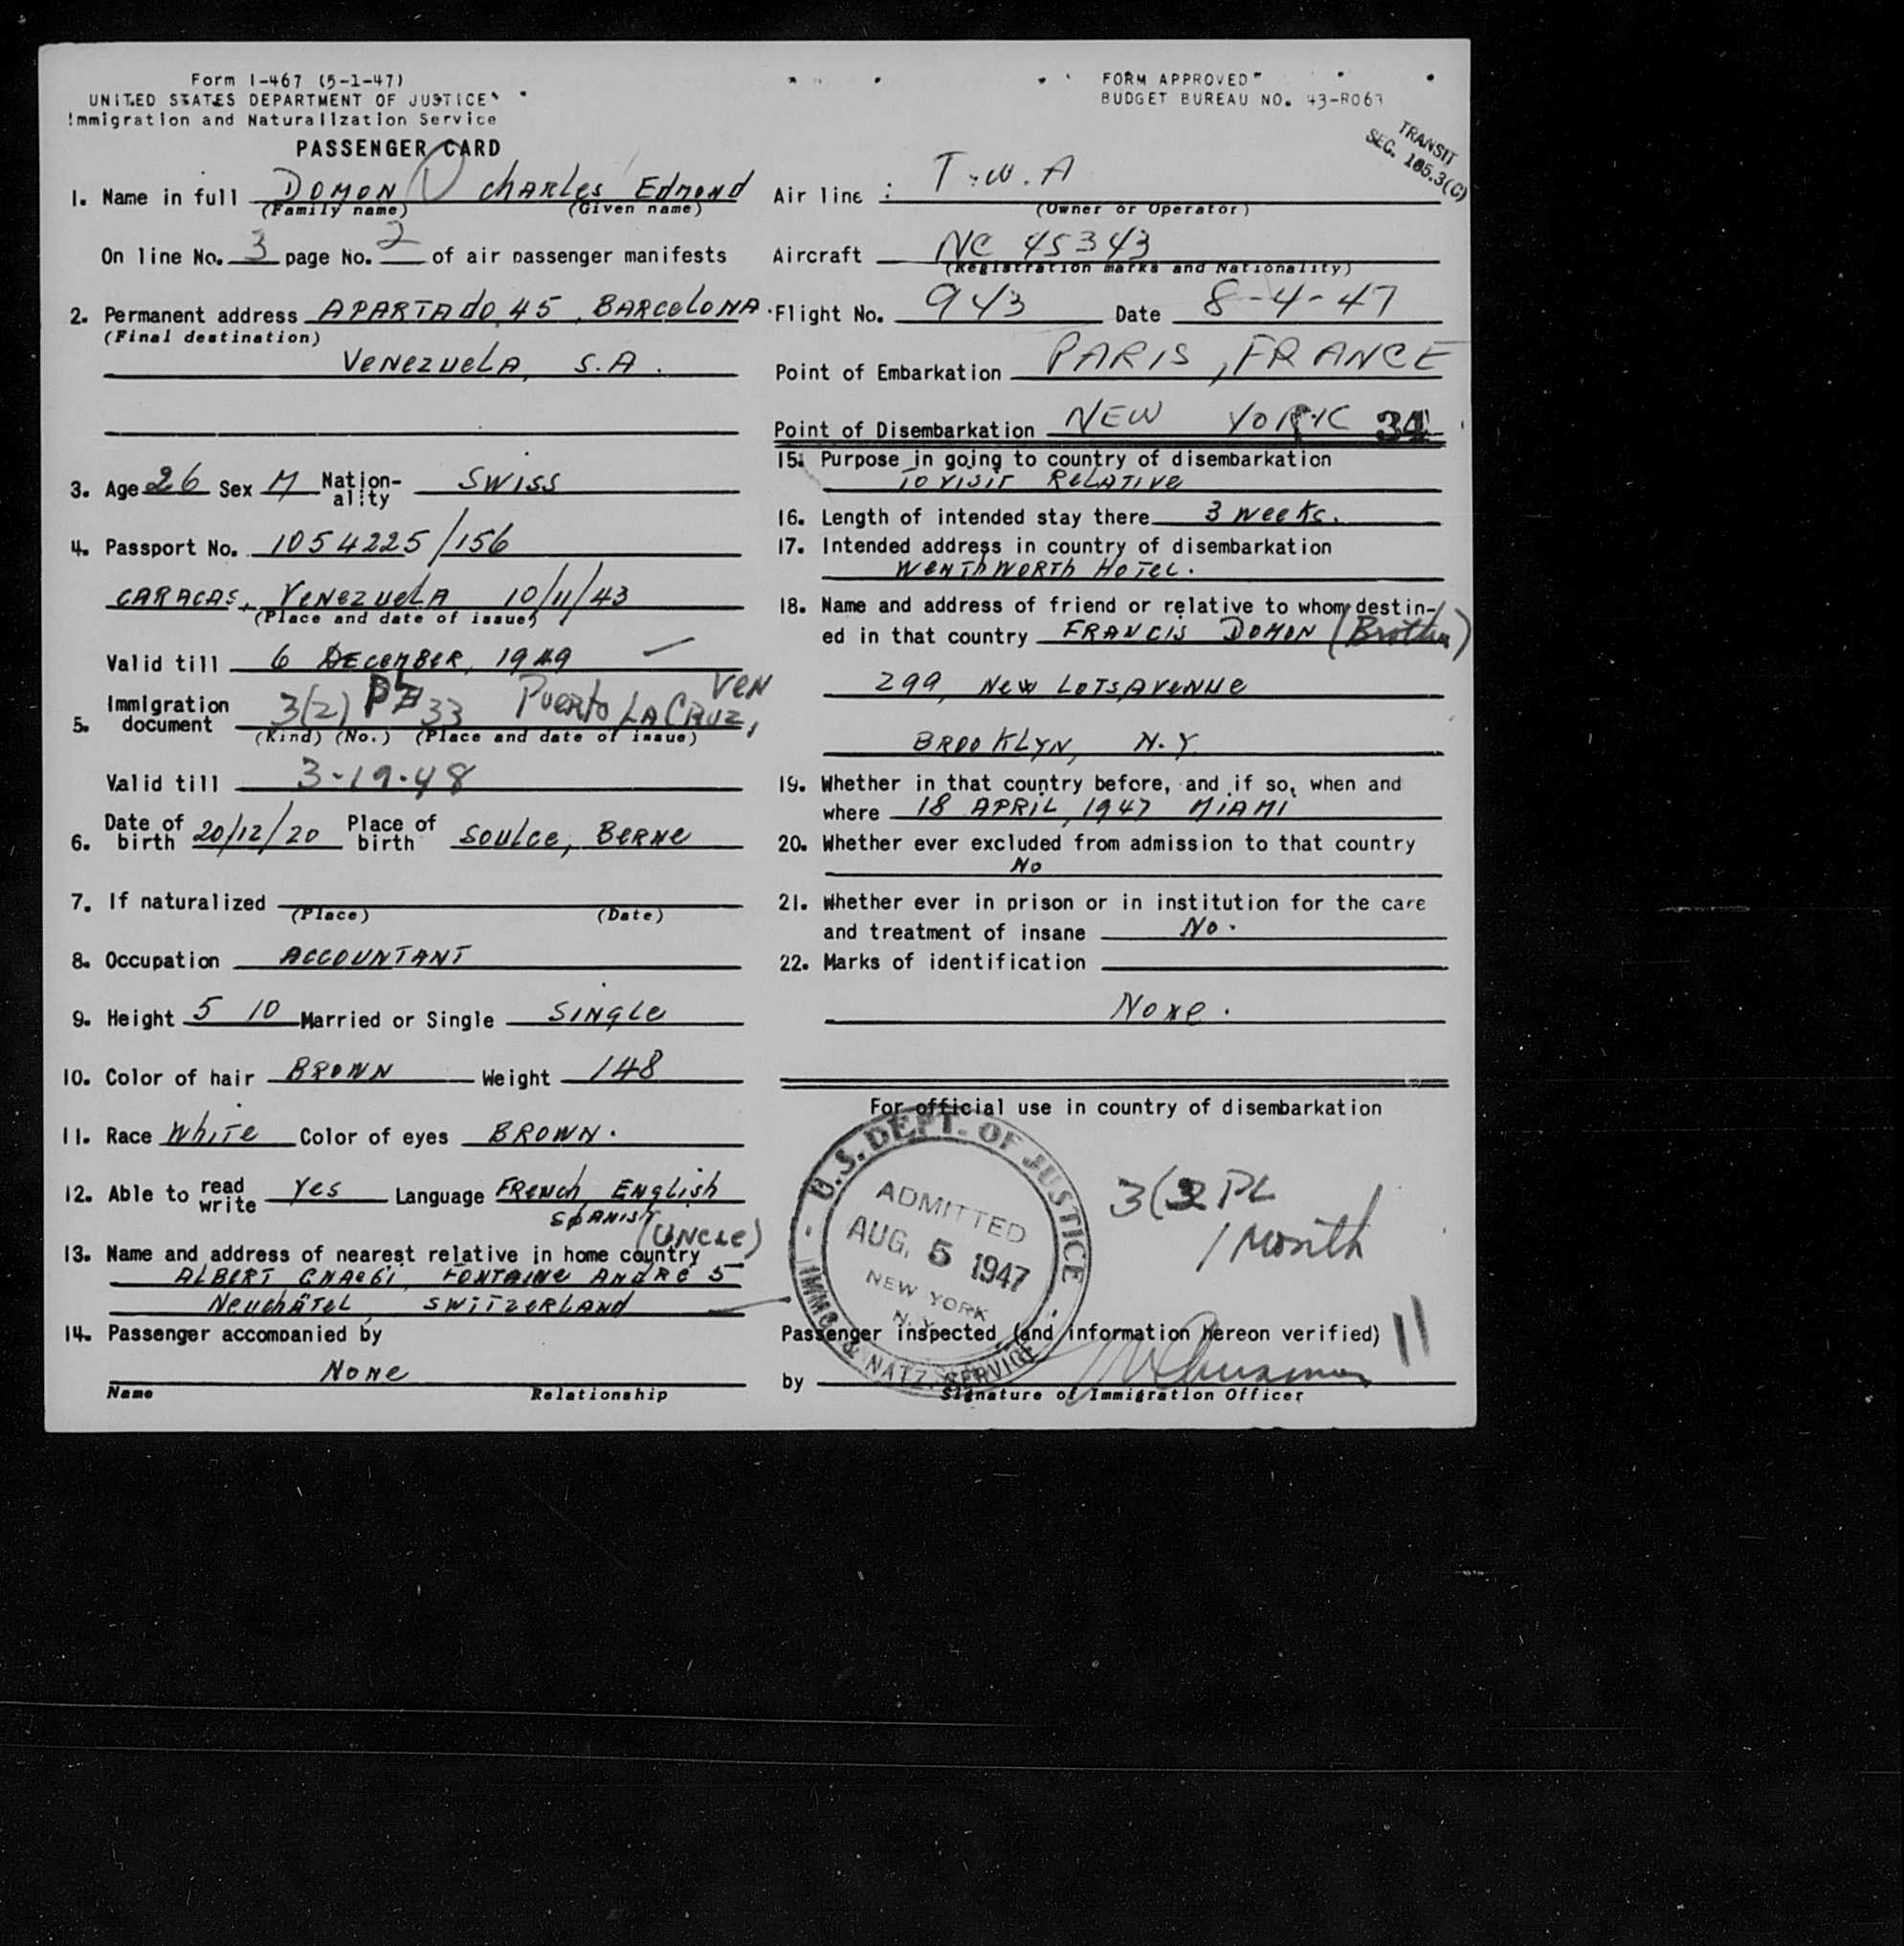 Form I-467 (5-1-47)
UNITED STATES DEPARTMENT OF JUSTICE
Immigration and Naturalization Service
PASSENGER CARD
FORM APPROVED
BUDGET BUREAU NO. 43-R063
TRANSIT
SEC. 165.3(C)
1. Name in full DOMON Charles Edmond
(Family name) (Given name)
On line No. 3 page No. 2 of air passenger manifests
2. Permanent address APARTAdo 45, BARCELONA
(Final destination)
VENEZUELA, S.A.
3. Age 26 Sex M Nation-
ality SWISS
4. Passport No. 1054225/156
CARACAS, VENEZUELA 10/11/43
(Place and date of issue)
Valid till 6 DECEMBER, 1949
5. Immigration
document 3(2) PL 33 Puerto LA CRUZ, VEN
(Kind) (No.) (Place and date of issue)
Valid till 3-19-48
6. Date of
birth 20/12/20 Place of
birth SOULCE, BERNE
7. If naturalized
(Place) (Date)
8. Occupation ACCOUNTANT
9. Height 5 10 Married or Single SINGLE
10. Color of hair BROWN Weight 148
11. Race White Color of eyes BROWN.
12. Able to read
write Yes Language FRENCH ENGLISH
SPANISH
13. Name and address of nearest relative in home country (UNCLE)
ALBERT GNAEGI, FONTAINE ANDRÉ 5
NEUCHÂTEL SWITZERLAND
14. Passenger accompanied by
NONE
Name Relationship
Air line : T.W.A
(Owner or Operator)
Aircraft NC 45343
(Registration marks and Nationality)
Flight No. 943 Date 8-4-47
Point of Embarkation PARIS, FRANCE
Point of Disembarkation NEW YORK 34
15. Purpose in going to country of disembarkation
TO VISIT RELATIVE
16. Length of intended stay there 3 weeks.
17. Intended address in country of disembarkation
WENTHWORTH HOTEL.
18. Name and address of friend or relative to whom destin-
ed in that country FRANCIS DOMON (Brother)
299, NEW LOTS AVENUE
BROOKLYN, N.Y.
19. Whether in that country before, and if so, when and
where 18 APRIL, 1947 MIAMI
20. Whether ever excluded from admission to that country
No
21. Whether ever in prison or in institution for the care
and treatment of insane No.
22. Marks of identification
None.
For official use in country of disembarkation
U.S. DEPT. OF JUSTICE
ADMITTED
AUG. 5 1947
NEW YORK
N.Y.
IMMG. & NATZ. SERVICE
3(2 PL
1 Month
Passenger inspected (and information hereon verified) 11
by
Signature of Immigration Officer